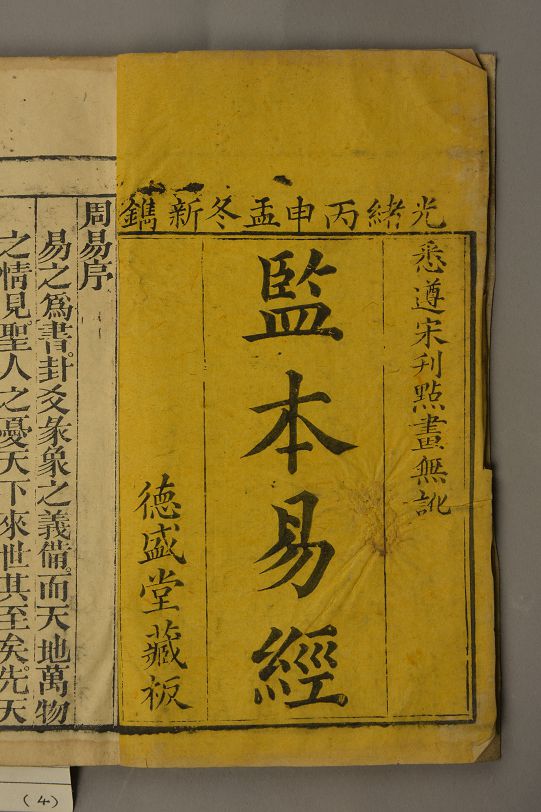 光緒丙申孟冬新鐫
悉遵宋刋點畫無訛
監本易經
德盛堂藏板
周易序
易之爲書卦爻彖象之義備而天地萬物
之情見聖人之憂天下來世其至矣先天
(4)